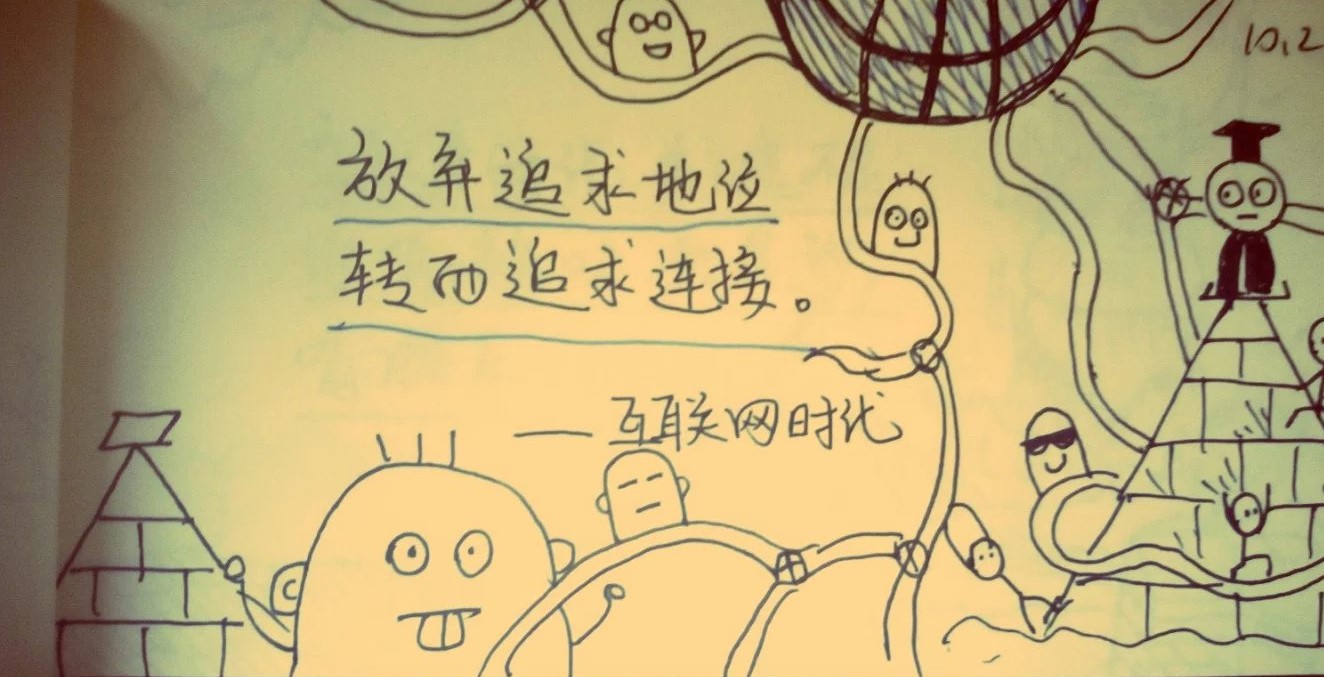 10.2
放弃追求地位
转而追求连接。
——互联网时代